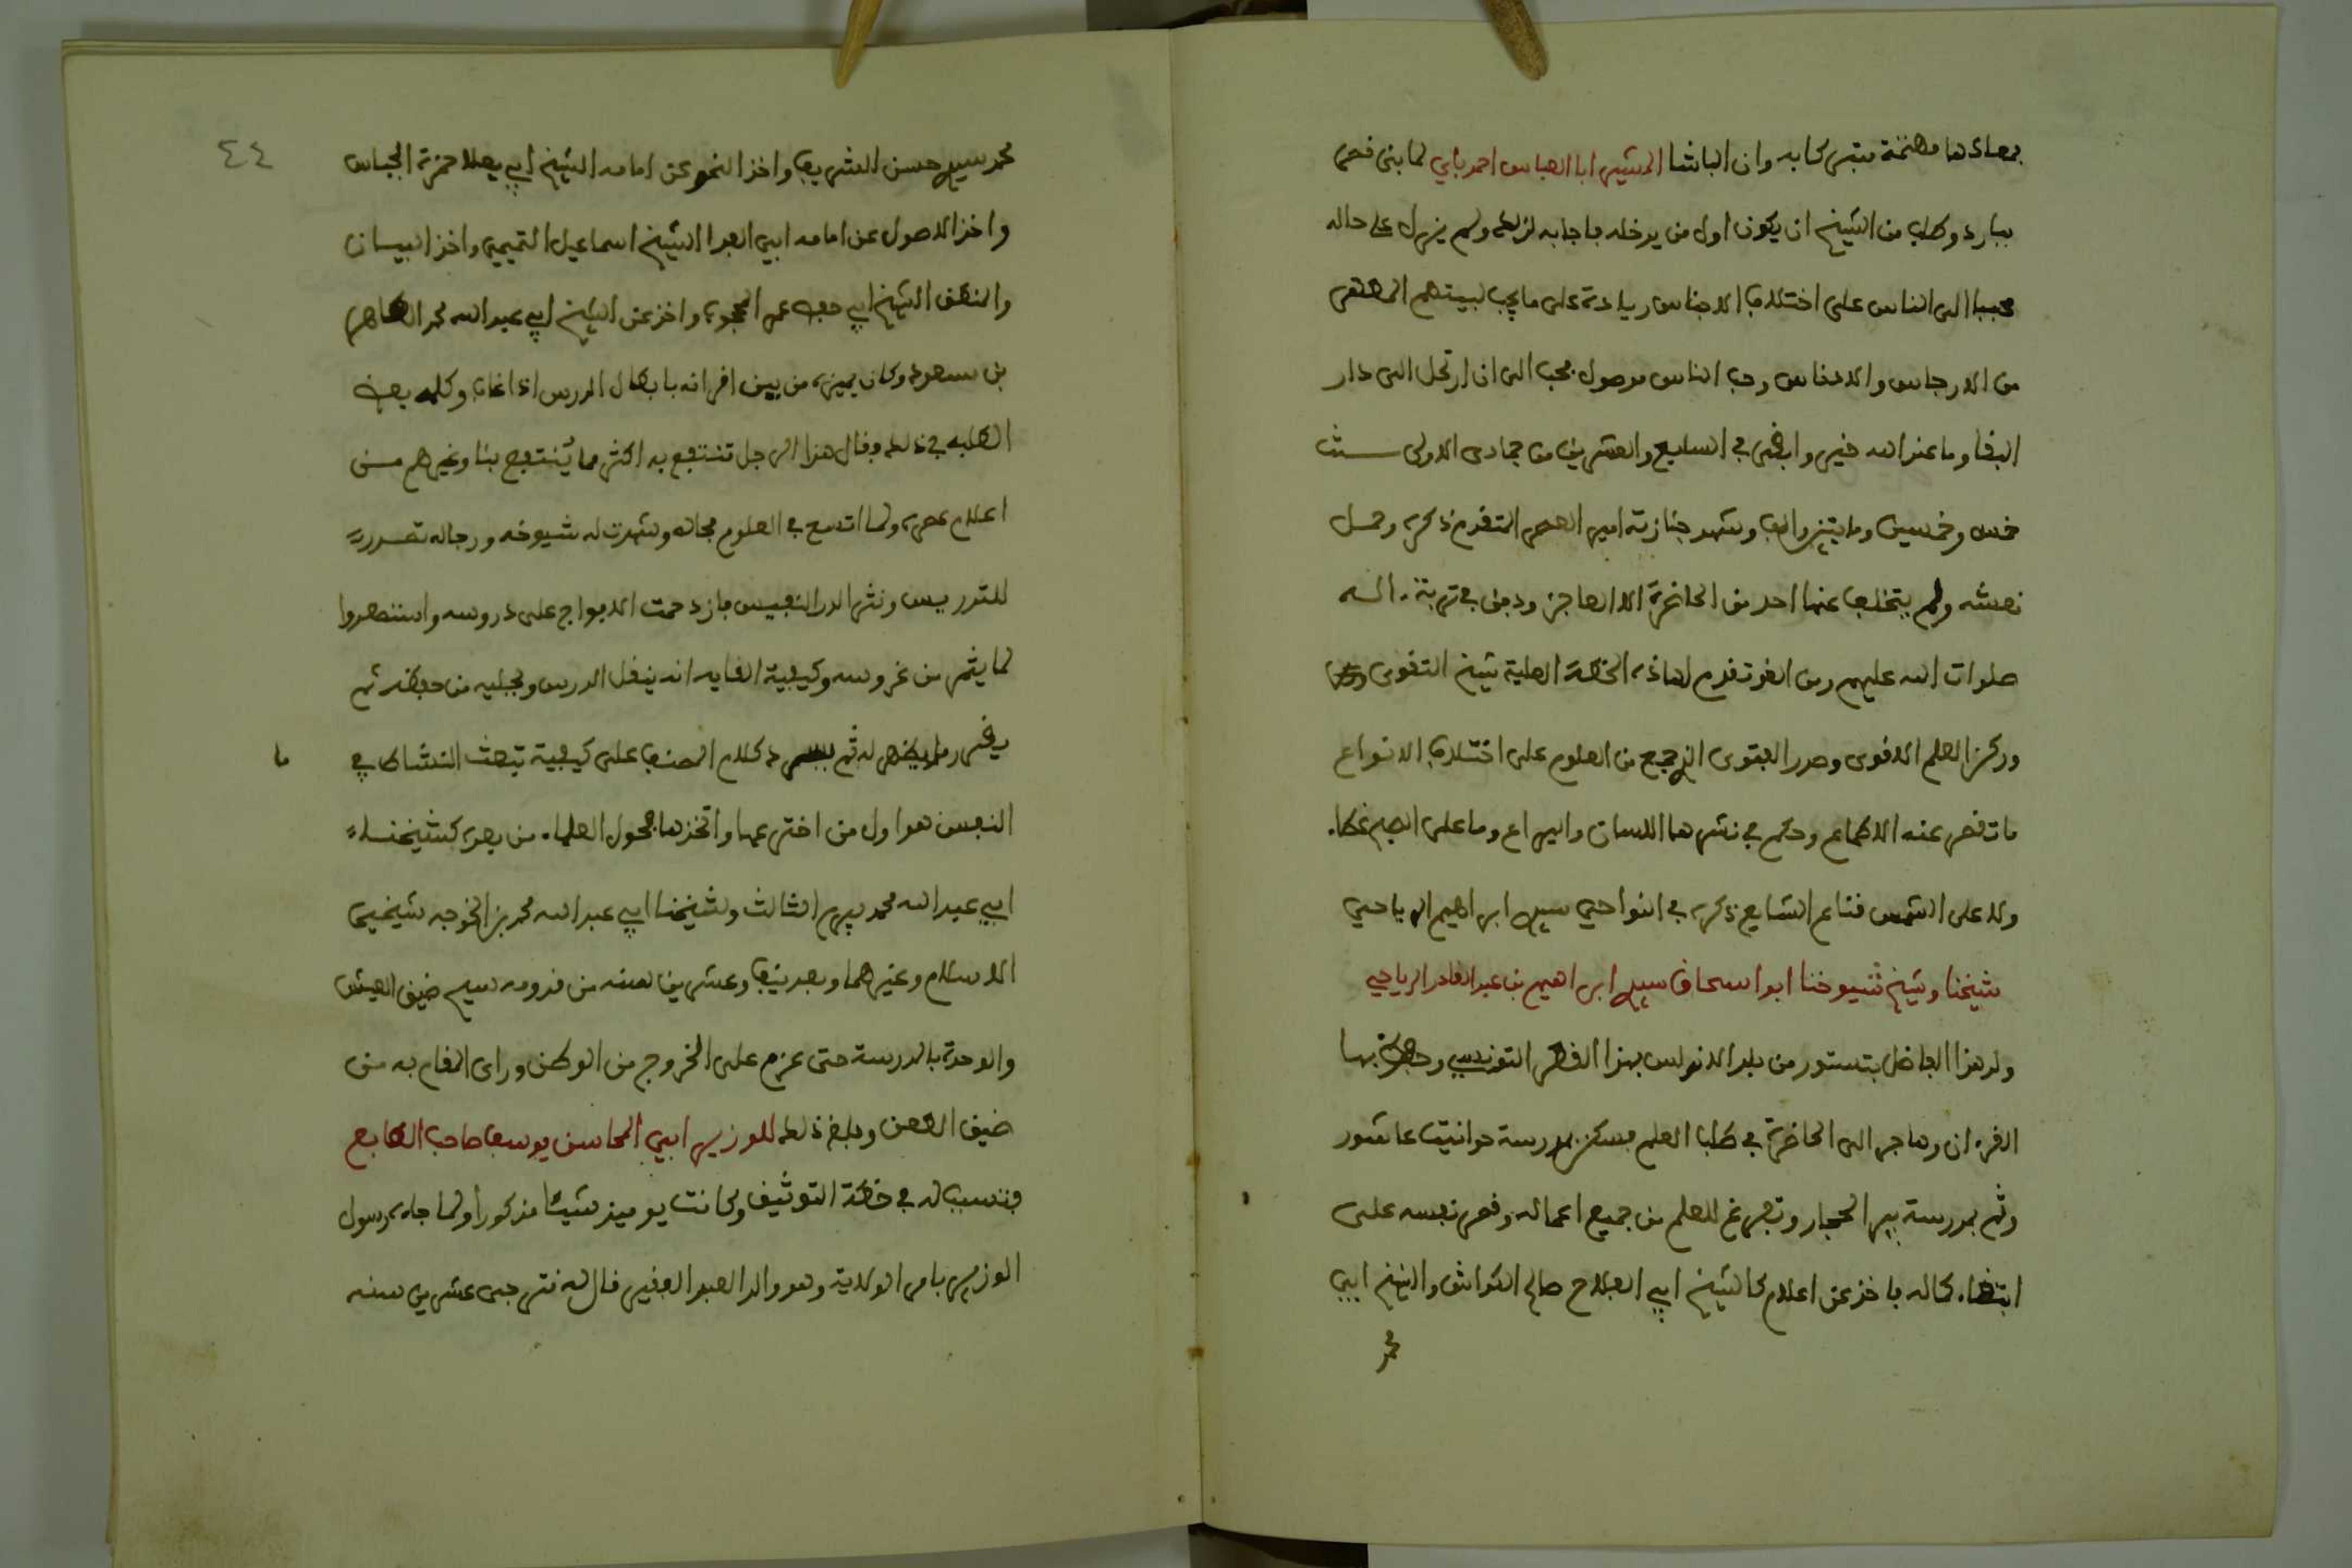 بمعادها مطمئنة متبركا به وان الباشا المشير ابا العباس احمد باي لما بنى قصره
بباردو طلب من الشيخ ان يكون اول من يدخله فاجابه لذلك ولم يزل على حاله
محببا الى الناس على اختلاف الاجناس زيادة على ما يجب لبيتهم المطهر
من الارجاس والادناس وحب الناس موصول بمحب الى ان ارتحل الى دار
البقا وما عند الله خير وابقى في السابع والعشرين من جمادى الاولى سنة
خمس وخمسين ومايتين والف وشهد جنازته امير العصر المتقدم ذكره وحمل
نعشه ولم يتخلف عنها احد من الحاضرة الا العاجز ودفن في تربة الـ
صلوات الله عليهم ومن الغد تقدم لهاذه الخطة العلية شيخ التقوى
وركز العلم الاقوى وصدر الفتوى الذي جمع من العلوم على اختلاف الانواع
ما تقصر عنه الاطماع وحكم في نشرها اللسان واليراع وما على الصبح غطاء
ولا على الشمس قناع الشايع ذكره في النواحي سيدي ابراهيم الرياحي
شيخنا وشيخ شيوخنا ابو اسحاق سيدي ابراهيم بن عبد القادر الرياحي
ولد هذا الفاضل بتستور من بلد الاندلس بهذا القطر التونسي وحفظ بها
القرءان وهاجر الى الحاضرة في طلب العلم فسكن بمدرسة حوانيت عاشور
وثم بمدرسة بير الحجار وتفرغ للعلم من جميع اعماله وقصر نفسه على
ابتغاء كماله فاخذ عن اعلام كالشيخ ابي الفلاح صالح الكواش والشيخ ابي
محمد
٤٤
محمد سيدي حسن الشريف واخذ النحو عن امامه الشيخ ابي يعلا حمزة الجباس
واخذ الاصول عن امامه ابي الفدا الشيخ اسماعيل التميمي واخذ البيان
والمنطق الشيخ ابي حفص عمر المحجوب واخذ عن الشيخ ابي عبد الله محمد الطاهر
بن مسعود وكان يميزه من بين اقرانه بابطال الدرس اذا غاب وكلمه بعض
الطلبة في ذلك وقال هذا الرجل تنتفع به اكثر مما ينتفع بنا وغيرهم من
اعلام عصره ولما اتسع في العلوم مجاله وشهدت له شيوخه ورجاله تصدر
للتدريس ونثر الدر النفيس فازدحمت الافواج على دروسه واستنصروا
لما يثمر من غروسه وكيفية القايه انه ينقل الدرس ويجليه من حفظه ثم
يقرر ما يظهر له ثم يسرد كلام المصنف على كيفية تبعث النشاط في
ما
النفس هو اول من اخترعها واتخذها فحول العلماء من بعده كشيخنا
ابي عبد الله محمد بيرم الثالث وشيخنا ابي عبد الله محمد بن الخوجه شيخي
الاسلام وغيرهما وبعد نيف وعشرين سنه من قدومه سيم ضيق العيش
والوحدة بالمدرسة حتى عزم على الخروج من الوطن وراى المقام به من
ضيق العطن وبلغ ذلك للوزير ابي المحاسن يوسف صاحب الطابع
فتسبب له في خطة التوثيق وكانت يوميذ شيئا مذكورا ولما جاءه رسول
الوزير بامر الولاية وهو والد العبد الفقير قال له نترجى عشرين سنه